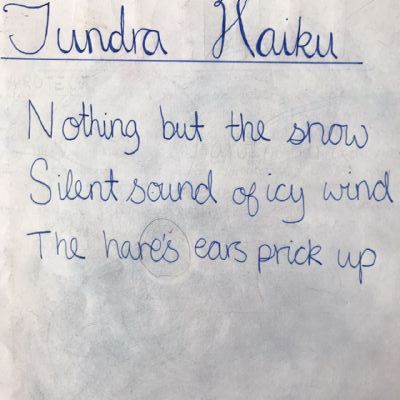 Tundra Haiku
Nothing but the snow
Silent sound of icy wind
The hare's ears prick up